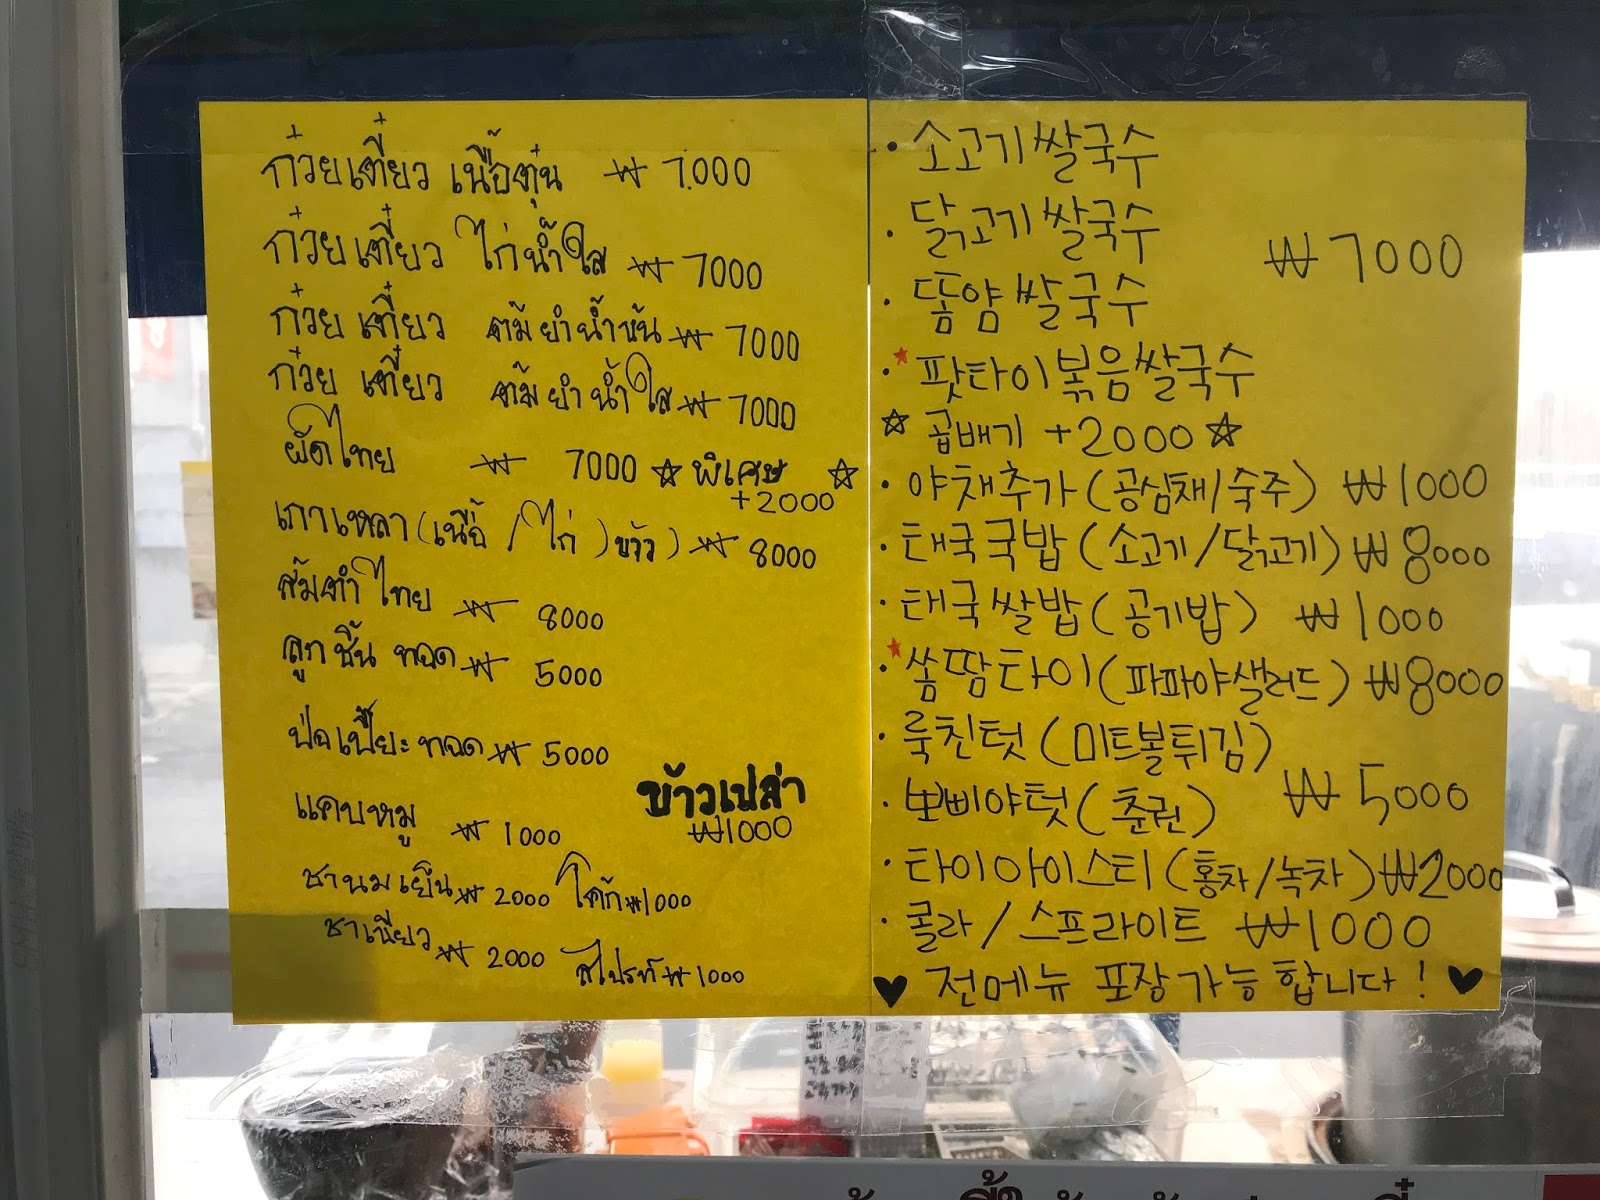 ก๋วยเตี๋ยว เนื้อตุ๋น ₩ 7.000
ก๋วยเตี๋ยว ไก่น้ำใส ₩ 7000
ก๋วยเตี๋ยว ต้มยำน้ำข้น ₩ 7000
ก๋วยเตี๋ยว ต้มยำน้ำใส ₩ 7000
ผัดไทย ₩ 7000 ☆ พิเศษ ☆
+2000
เกาเหลา (เนื้อ / ไก่ ) ข้าว) ₩ 8000
ส้มตำไทย ₩ 8000
ลูกชิ้นทอด ₩ 5000
ป่อเปี๊ยะทอด ₩ 5000
แคบหมู ₩ 1000
ข้าวเปล่า
₩1000
ชานมเย็น ₩ 2000 โค้ก ₩1000
ชาเขียว ₩ 2000 สไปรท์ ₩ 1000
· 소고기쌀국수
· 닭고기쌀국수 ₩7000
· 똠얌쌀국수
· 팟타이볶음쌀국수
☆ 곱배기 +2000 ☆
· 야채추가(공심채/숙주) ₩1000
· 태국국밥(소고기/닭고기) ₩8000
· 태국쌀밥(공기밥) ₩1000
· 쏨땀타이(파파야샐러드) ₩8000
· 룩친텃(미트볼튀김)
₩5000
· 뽀삐야텃(춘권)
· 타이아이스티(홍차/녹차) ₩2000
· 콜라/스프라이트 ₩1000
♥ 전메뉴 포장가능합니다! ♥